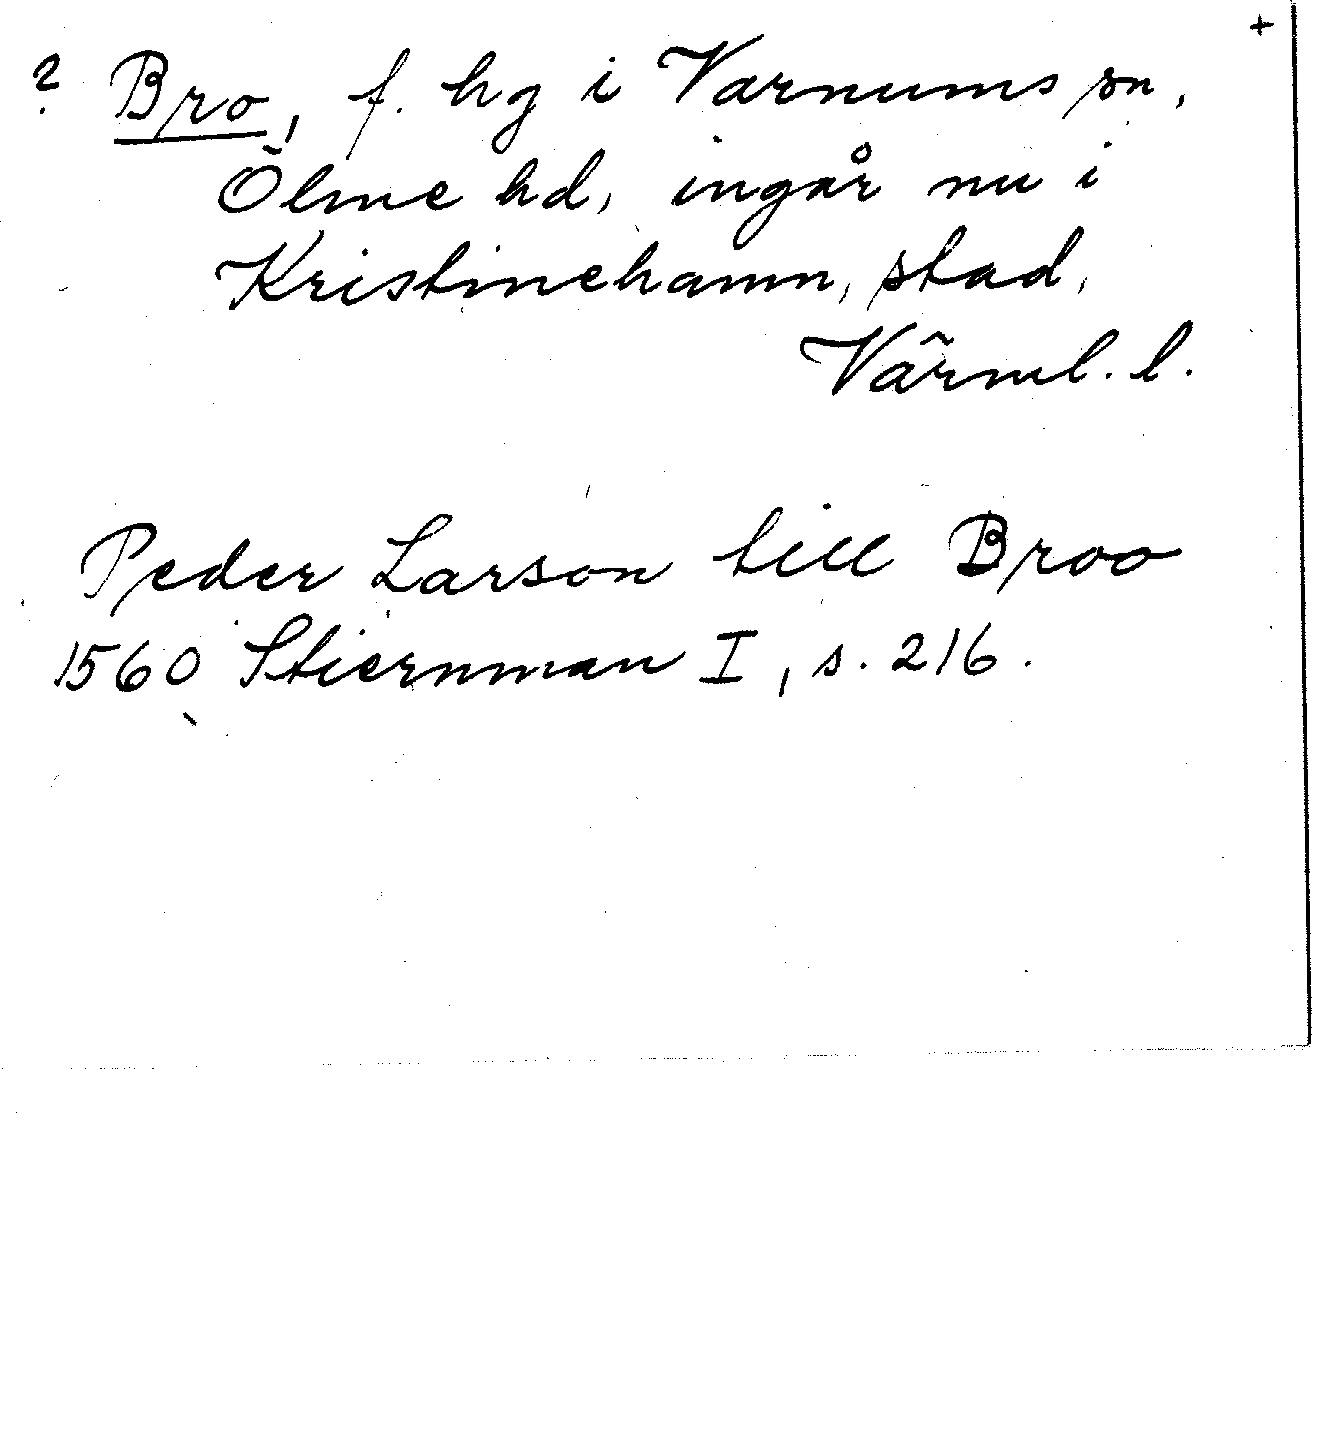 +
? Bro, f. hg i Varnums sn,
Ölme hd, ingår nu i
Kristinehamn, stad,
Värml. l.
Peder Larson till Broo
1560 Stiernman I, s. 216.